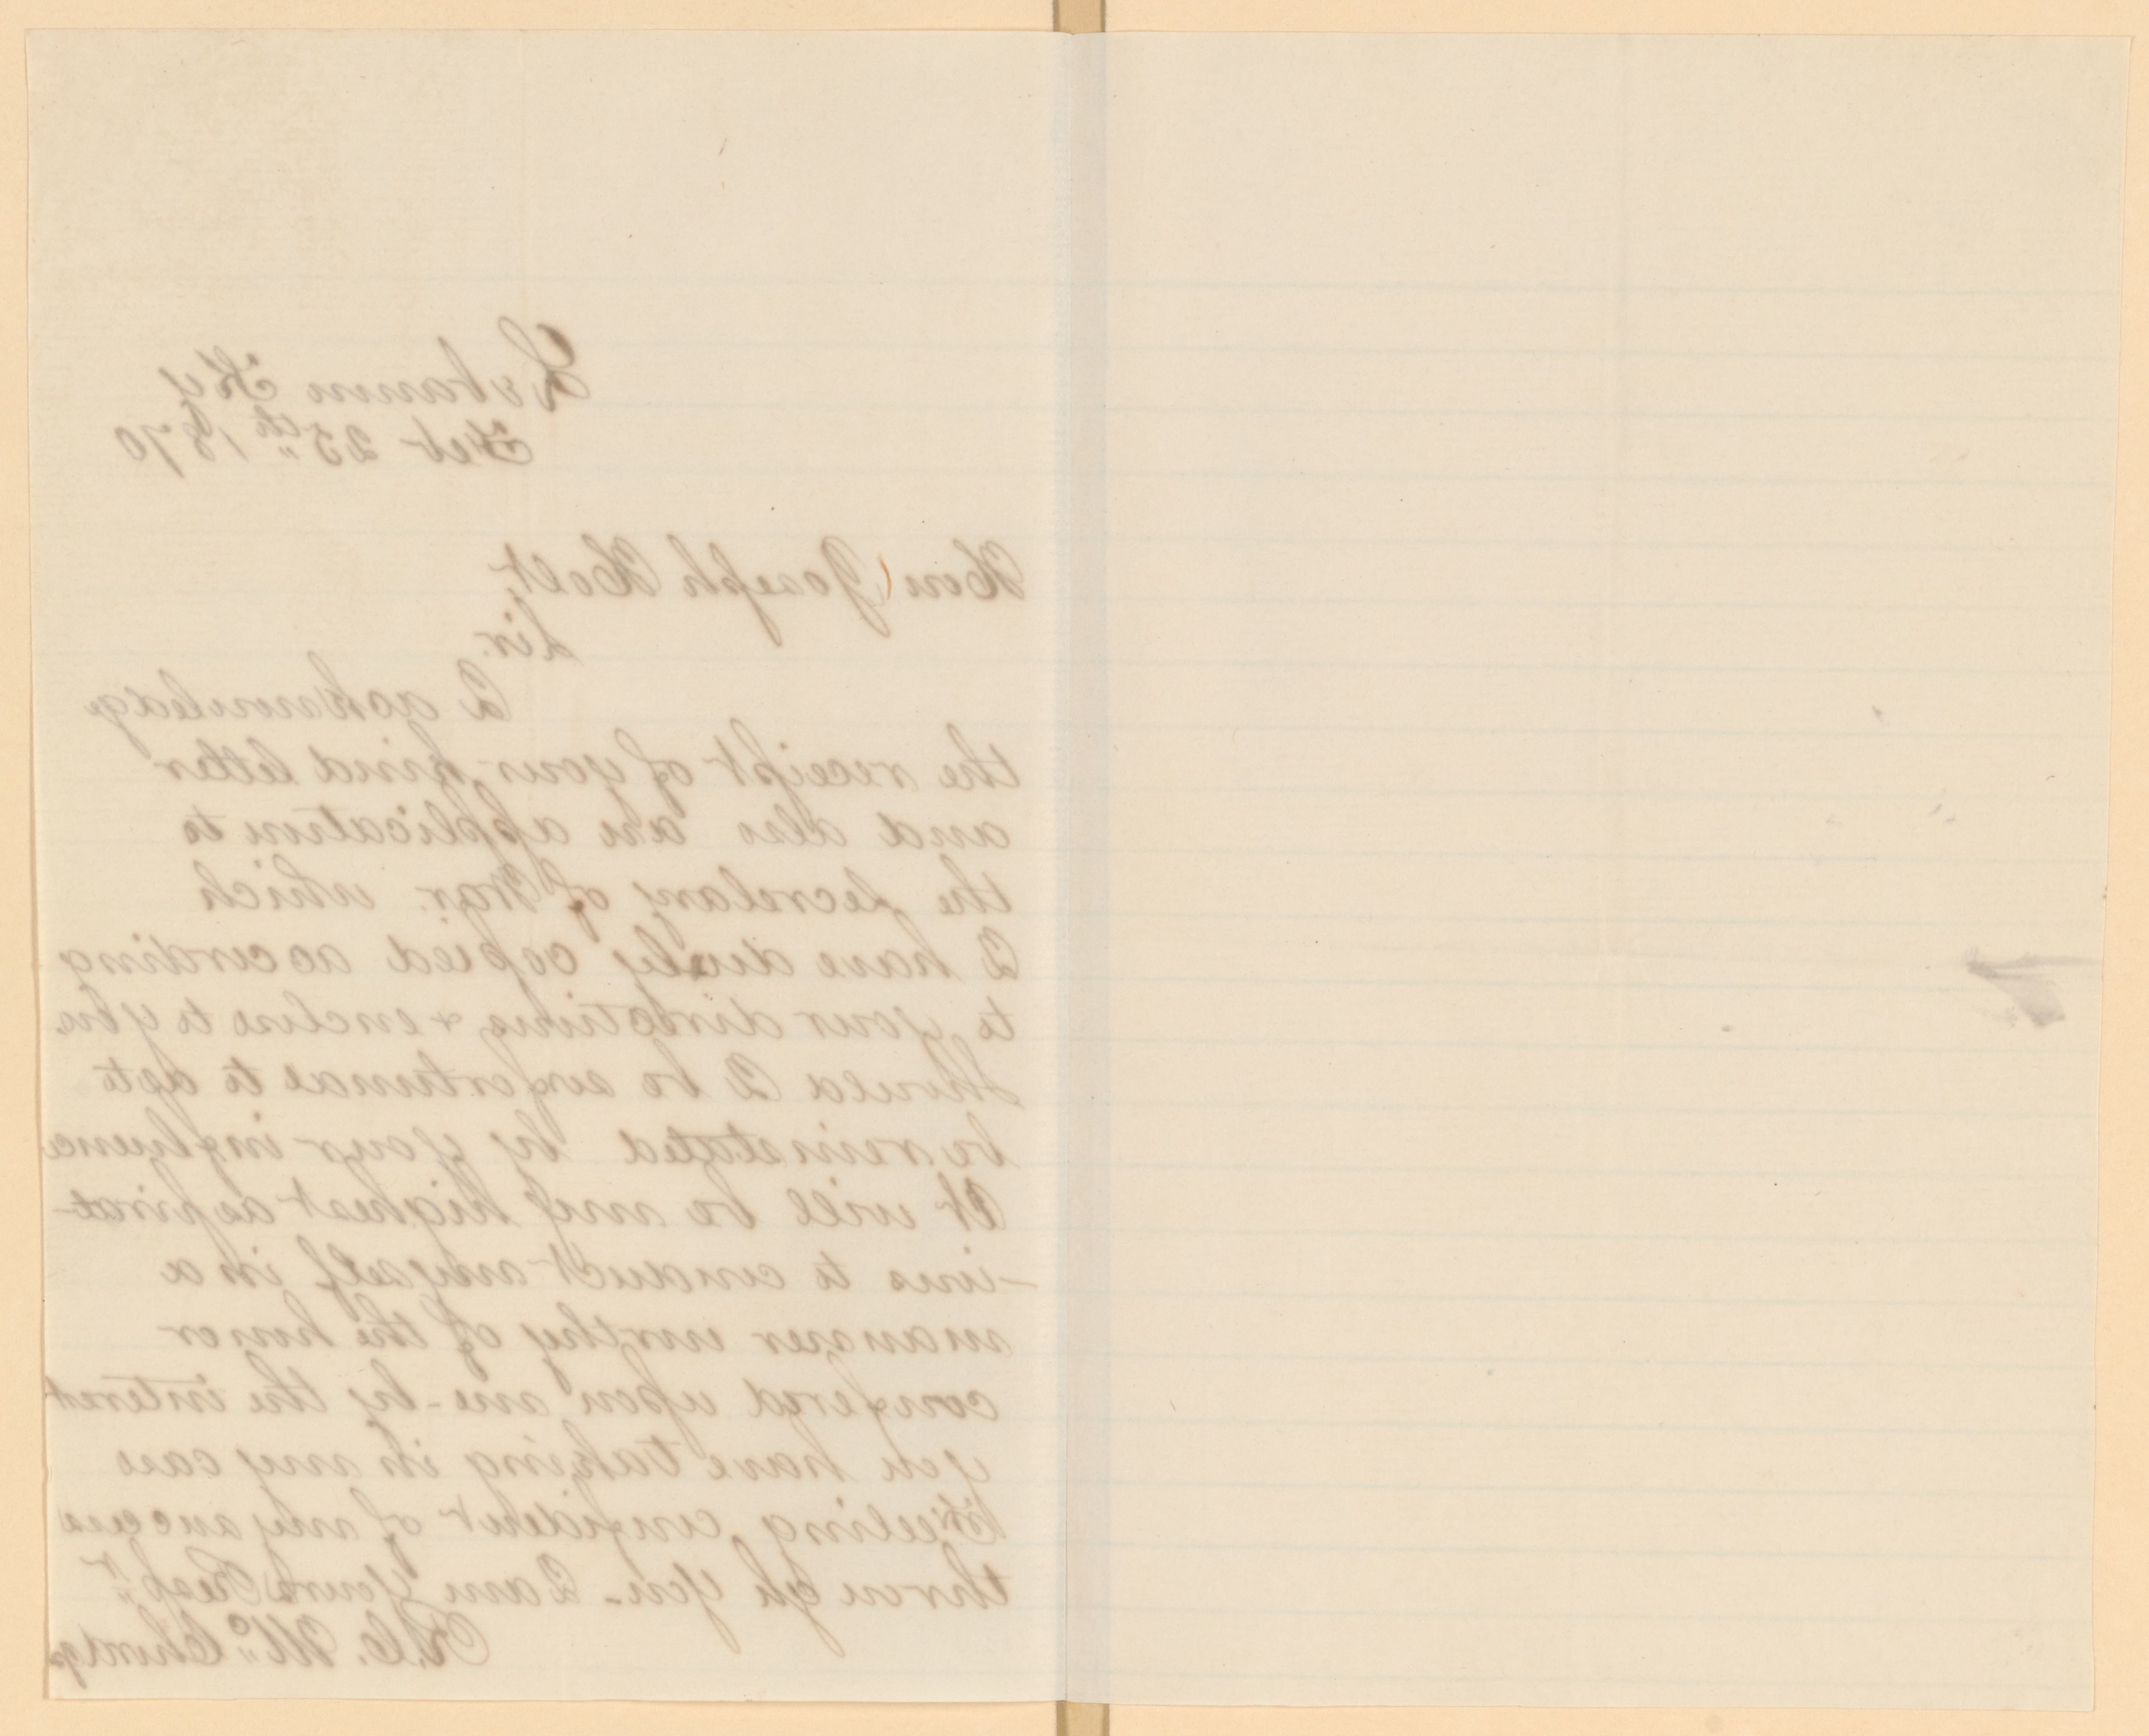 Lebanon Ky
Feb 25th 1870
Hon Joseph Holt,
Sir.
I acknowledge
the receipt of your kind letter
and also an application to
the Secretary of War. which
I have duely copied according
to your directions & enclose to you
Should I be so fortunate to
be reinstated by your influence
It will be my highest aspirat-
-ions to conduct myself in a
manner worthy of the honor
confered upon me - by the interest
you have taking in my case
Feeling confident of my success
through you - I am Yours Respt